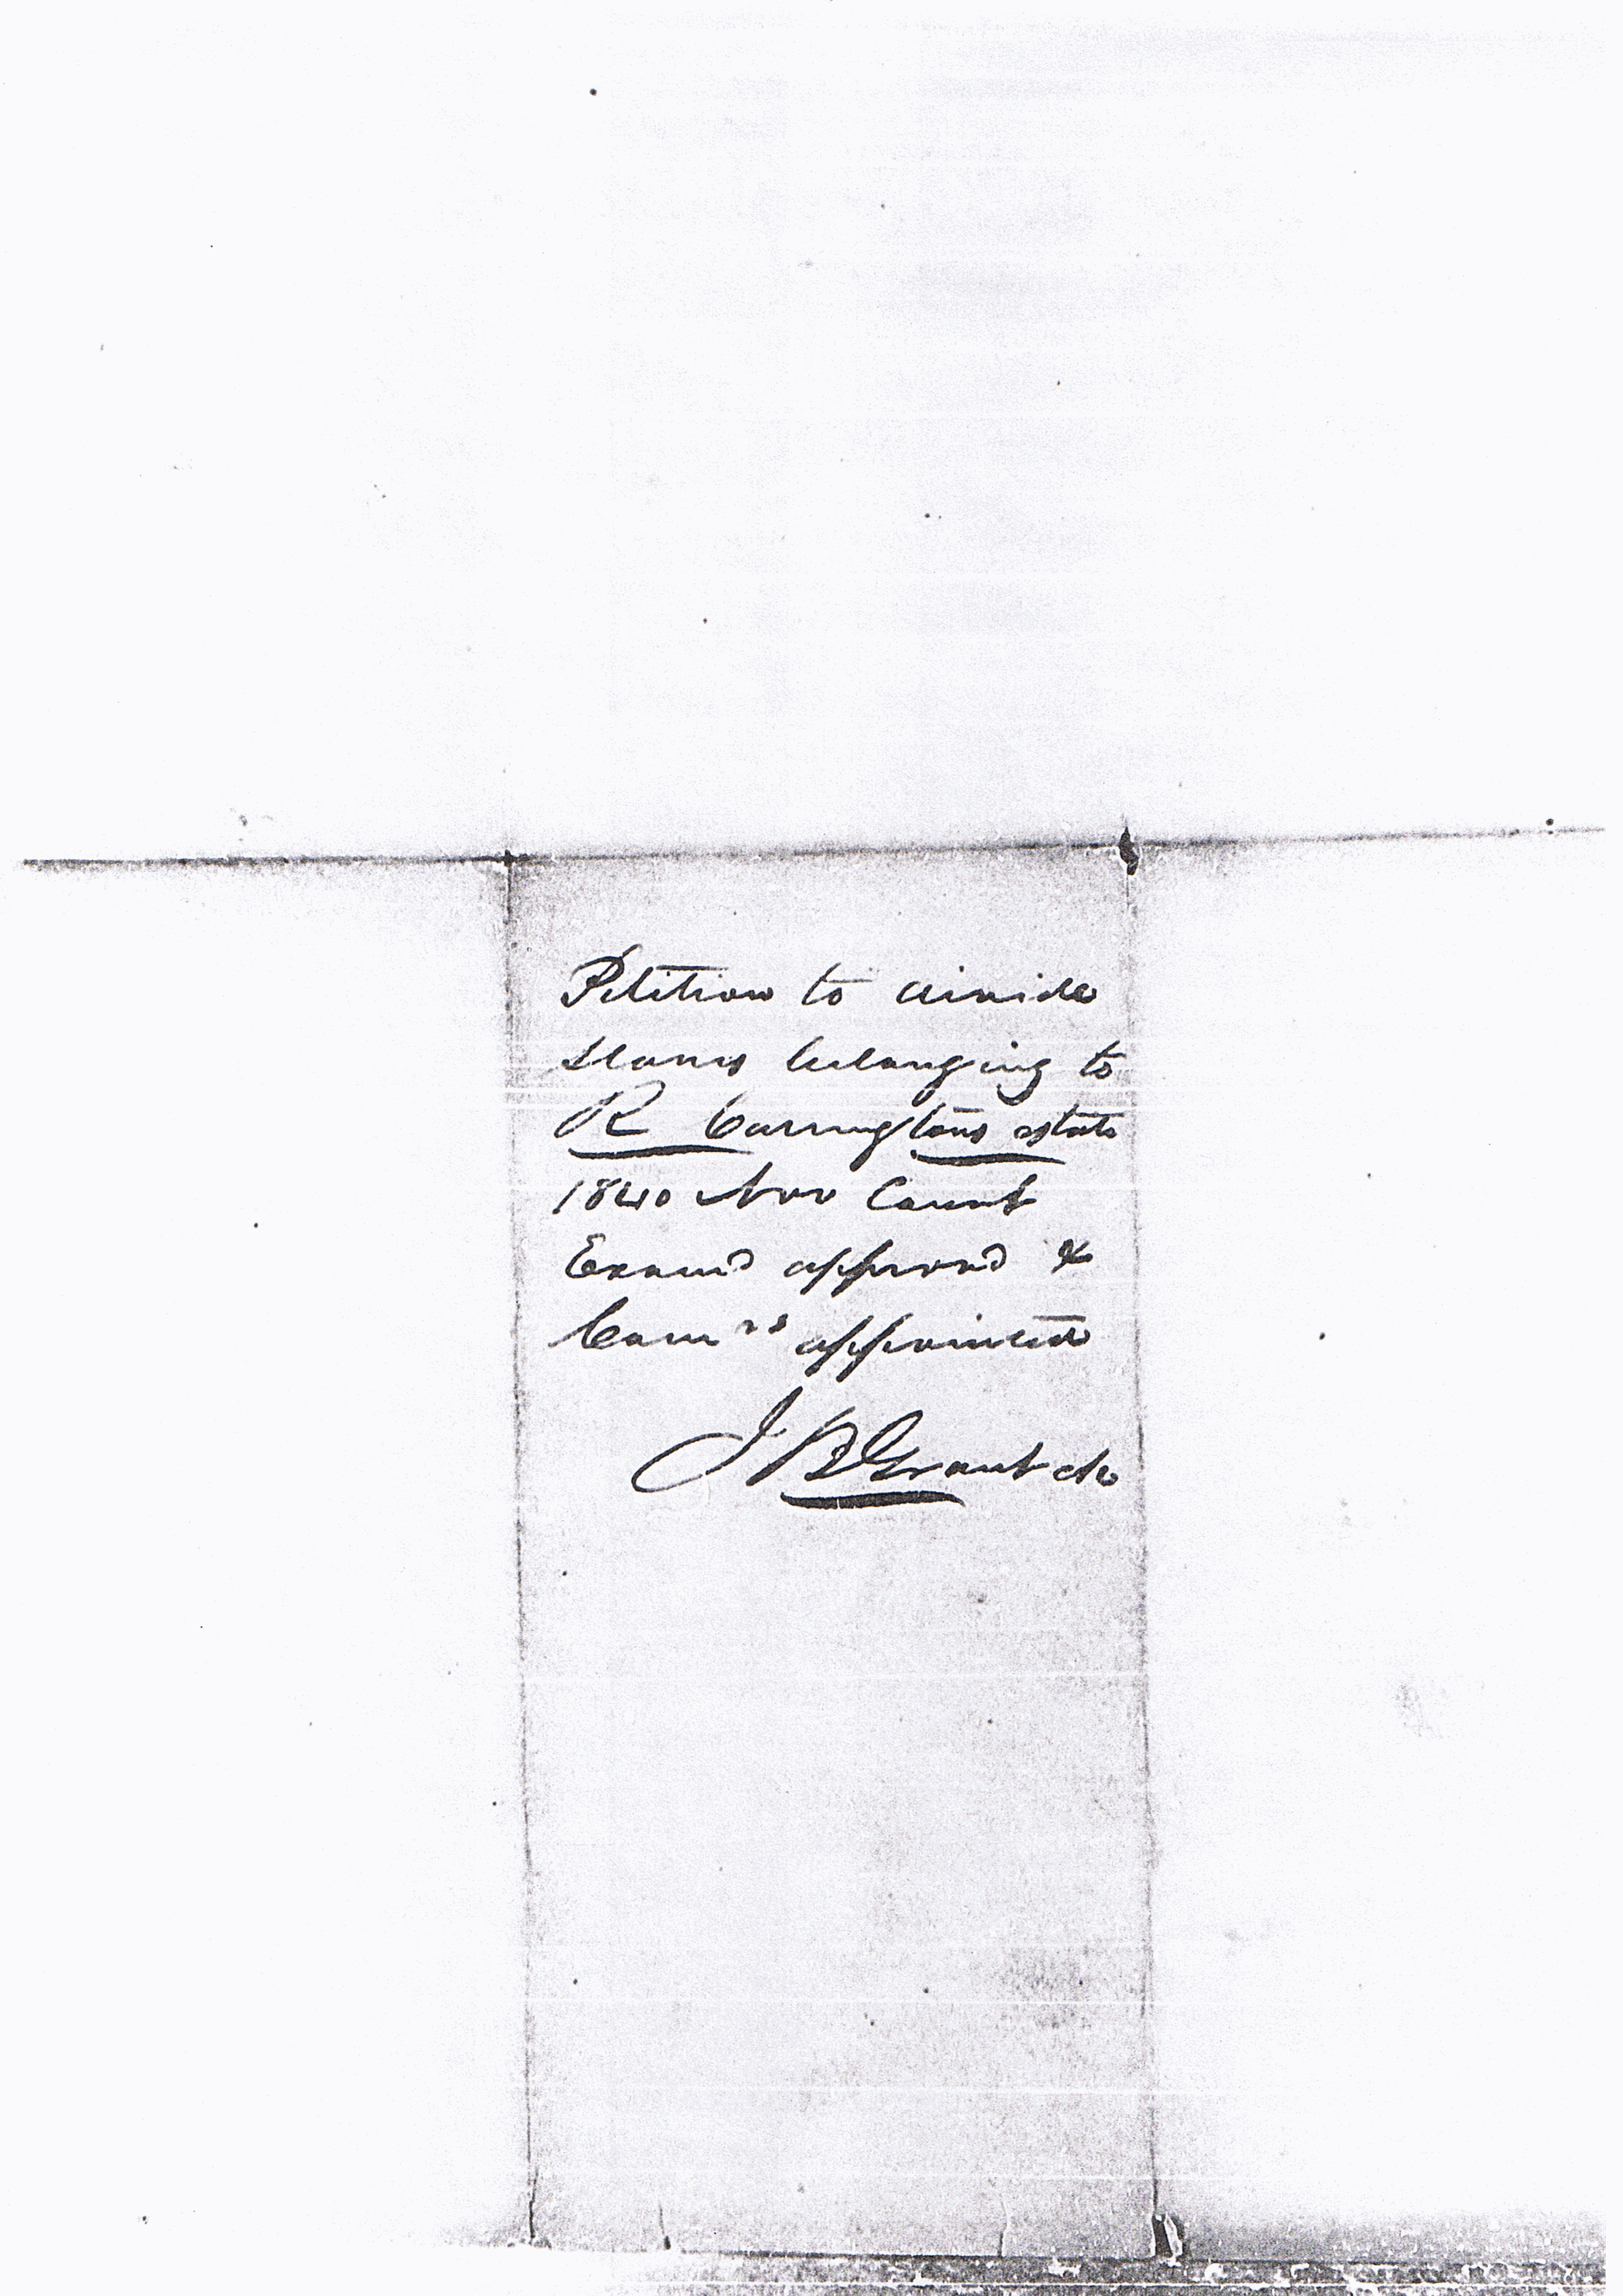 Petition to divide
Slaves belonging to
R Carringtons estate
1840 Nov Court
Examd approvd &
Comrs appointed
J B Grant clk